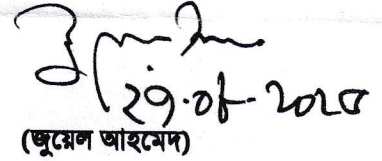 ২৭.০৮-২০২৫
(জুয়েল আহমেদ)